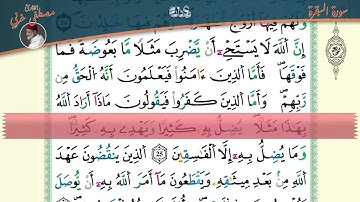 سورة البقرة
وَلَهُمْ فِيهَا أَزْوَاجٌ
إِنَّ اللَّهَ لَا يَسْتَحْيِۦ أَن يَضْرِبَ مَثَلًا مَّا بَعُوضَةً فَمَا
فَوْقَهَا فَأَمَّا الَّذِينَ ءَامَنُوا فَيَعْلَمُونَ أَنَّهُ الْحَقُّ مِن
رَّبِّهِمْ وَأَمَّا الَّذِينَ كَفَرُوا فَيَقُولُونَ مَاذَا أَرَادَ اللَّهُ
بِهَٰذَا مَثَلًا يُضِلُّ بِهِۦ كَثِيرًا وَيَهْدِي بِهِۦ كَثِيرًا
وَمَا يُضِلُّ بِهِۦ إِلَّا الْفَاسِقِينَ الَّذِينَ يَنقُضُونَ عَهْدَ
اللَّهِ مِن بَعْدِ مِيثَاقِهِۦ وَيَقْطَعُونَ مَا أَمَرَ اللَّهُ بِهِۦ أَن يُوصَلَ